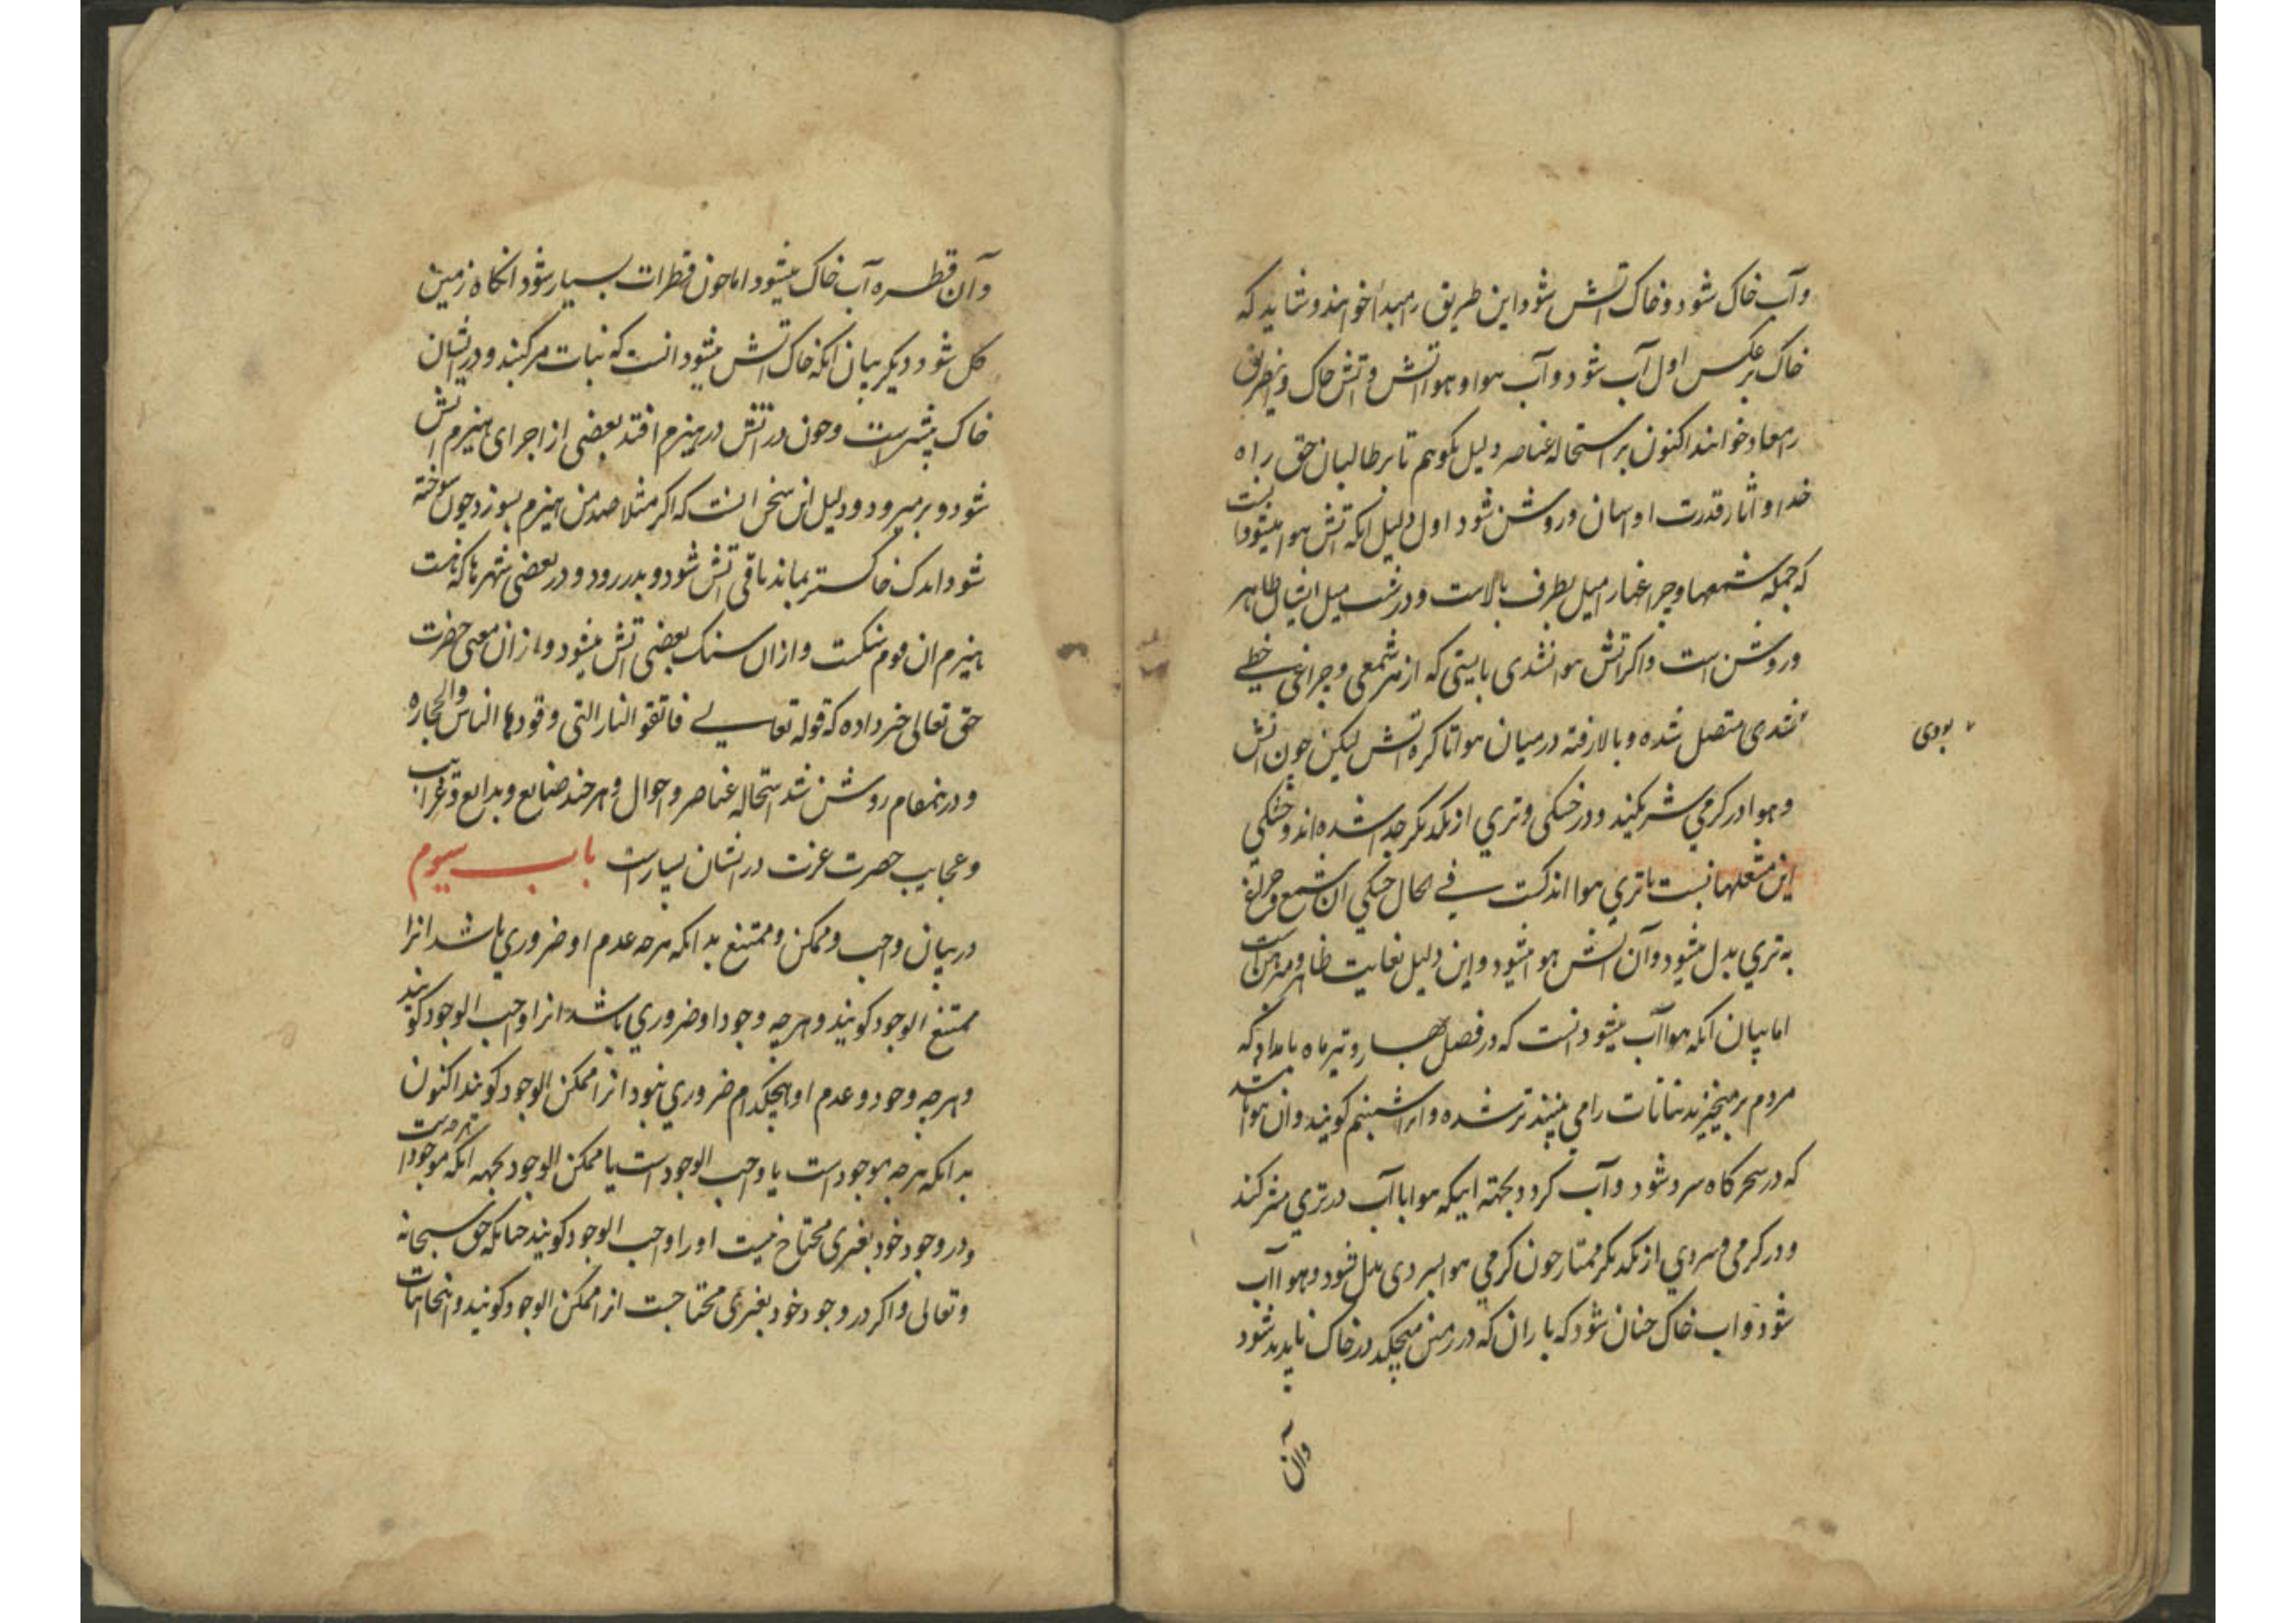 و آب خاک شود و خاک آتش شود این طریق را مبدأ خوانند و شاید که
خاک بر عکس اول آب شود و آب هوا و هوا آتش و آتش خاک و اینطریق
را معاد خوانند اکنون بر استحاله عناصر دلیل بکویم تا بر طالبان حق راه
خدا و آثار قدرت او اسان و روشن شود اول دلیل انکه آتش هوا میشود آنست
که جمله شمعها و چراغها را میل بطرف بالاست و در شب میل ایشان ظاهر
و روشن است و اکر آتش هوا نشدی بایستی که از هر شمعی و چراغی خطی
شدی متصل شده و بالا رفته در میان هوا تا کره آتش لیکن چون آتش
بودی
و هوا در کرمی شریکند و در خشکی و تری از یکدیکر جدا شده اند و خشکی
این مشعلها نسبت با تری هوا اندکست فی الحال خشکی ان شمع و چراغ
به تری بدل میشود و آن آتش هوا میشود و این دلیل بغایت ظاهر و مبرهن است
اما بیان آنکه هوا آب میشود انست که در فصل بهار و تیرماه بامداد که
مردم برمیخیزند نباتات را می بینند تر شده و انرا شبنم کویند و ان هوا باشد
که در سحرکاه سرد شود و آب کردد بجهته اینکه هوا با آب در تری شریکند
و در کرمی و سردی از یکدیکر ممتاز چون کرمی هوا بسردی بدل شود و هوا آب
شود و اب خاک چنان شود که باران که در زمین میچکد در خاک ناپدید شود
و آن
و آن قطره آب خاک میشود اما چون قطرات بسیار شود انکاه زمین
کل شود دیکر بیان انکه خاک آتش میشود انست که نبات مرکبند و در ایشان
خاک بیشتر است و چون در آتش در هیزم افتد بعضی از اجزای هیزم آتش
شود و بر میرود و دلیل این سخن انست که اکر مثلا صد من هیزم بسوزد چون سوخته
شود اندک خاکستر بماند باقی آتش شود و بدر رود و در بعضی شهرها که هست
هیزم ان قوم سنکست و از ان سنک بعضی آتش میشود و از ان معنی حضرت
حق تعالی خبر داده که قوله تعالی فاتقو النار التی وقودها الناس والحجاره
و درینمقام روشن شد استحاله عناصر و احوال و هر چند صنایع و بدایع و غرایب
و عجایب حضرت عزت در انشان بسیار است باب سیوم
در بیان واجب و ممکن و ممتنع بدانکه هر چه عدم او ضروری باشد انرا
ممتنع الوجود کویند و هر چه وجود او ضروری باشد انرا واجب الوجود کویند
و هر چه وجود و عدم او هیچکدام ضروری نبود انرا ممکن الوجود کویند اکنون
بدانکه هر چه موجود است یا واجب الوجود است یا ممکن الوجود بجهه آنکه هر چه موجود است
و در وجود خود بغیری محتاج نیست او را واجب الوجود کویند چنانکه حق سبحانه
و تعالی و اکر در وجود خود بغیری محتاجست انرا ممکن الوجود کویند و